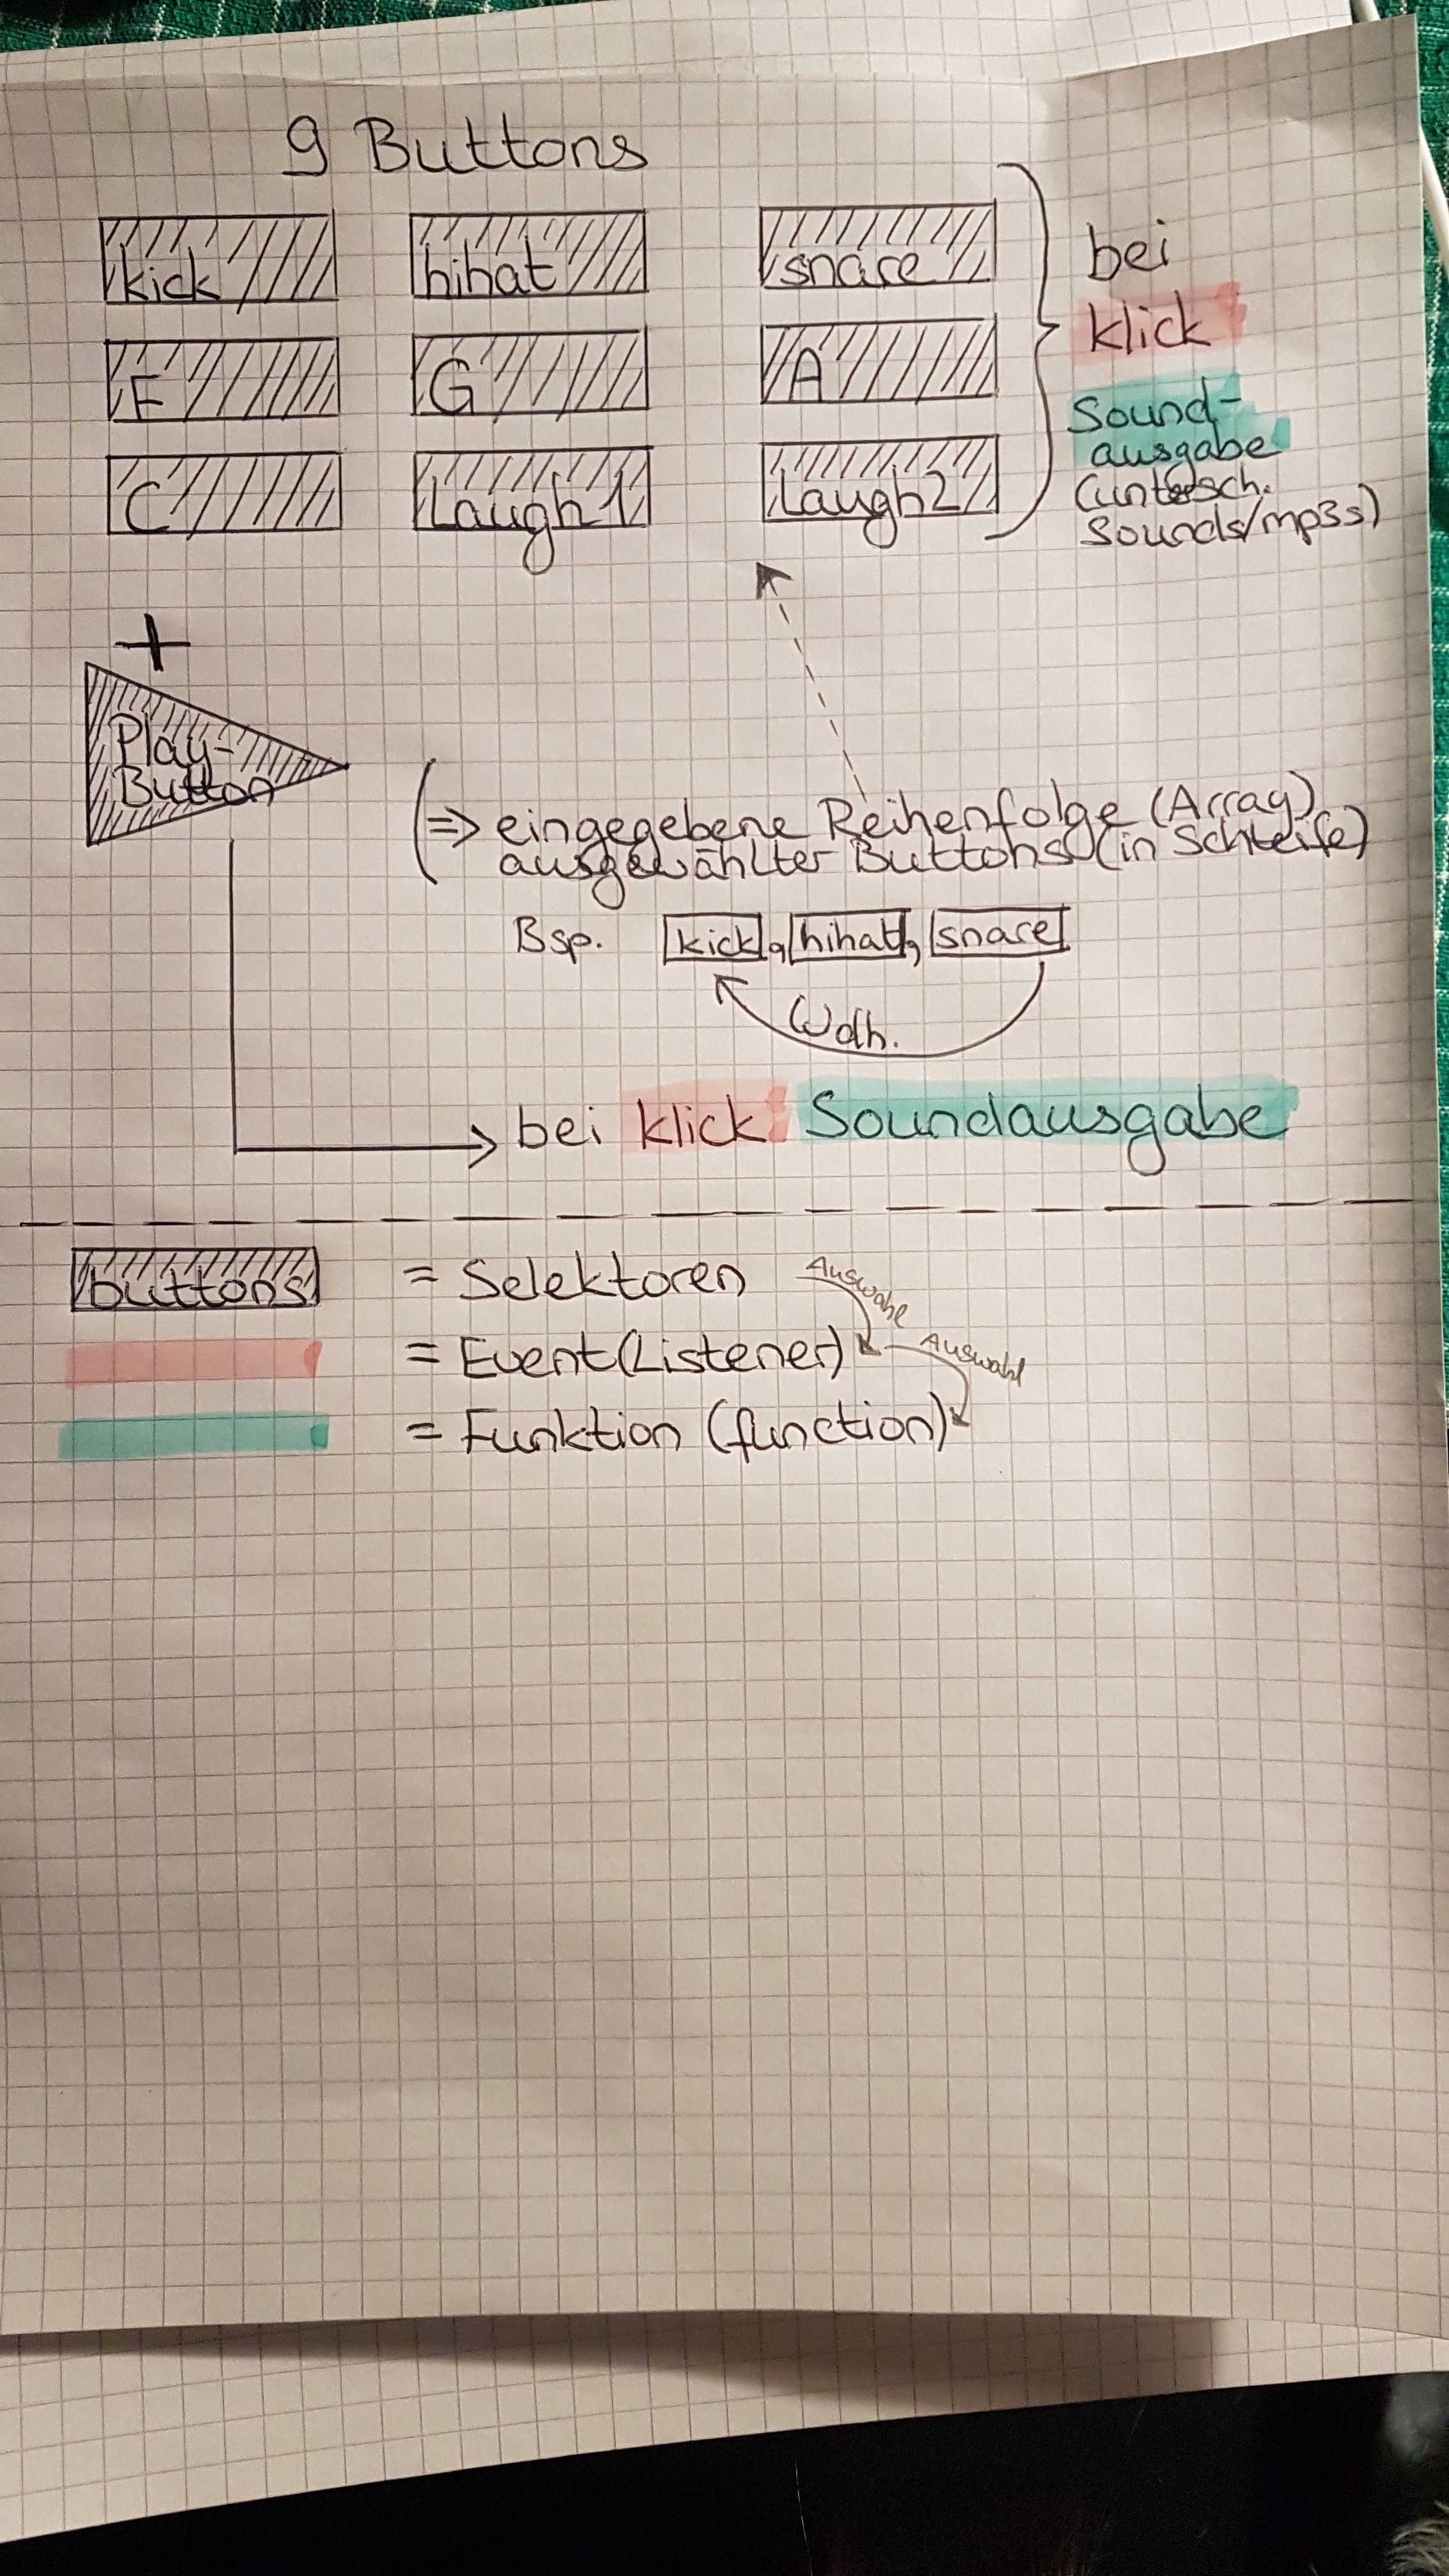 9 Buttons
kick hihat snare
F G A
C Laugh1 Laugh2
bei
klick
Sound-
ausgabe
(untersch.
Sounds/mp3s)
+
Play-
Button
(=> eingegebene Reihenfolge (Array)
ausgewählter Buttons (in Schleife)
Bsp. kick, hihat, snare
Wdh.
bei klick Soundausgabe
buttons = Selektoren
Auswahl
= Event(Listener)
Auswahl
= Funktion (function)